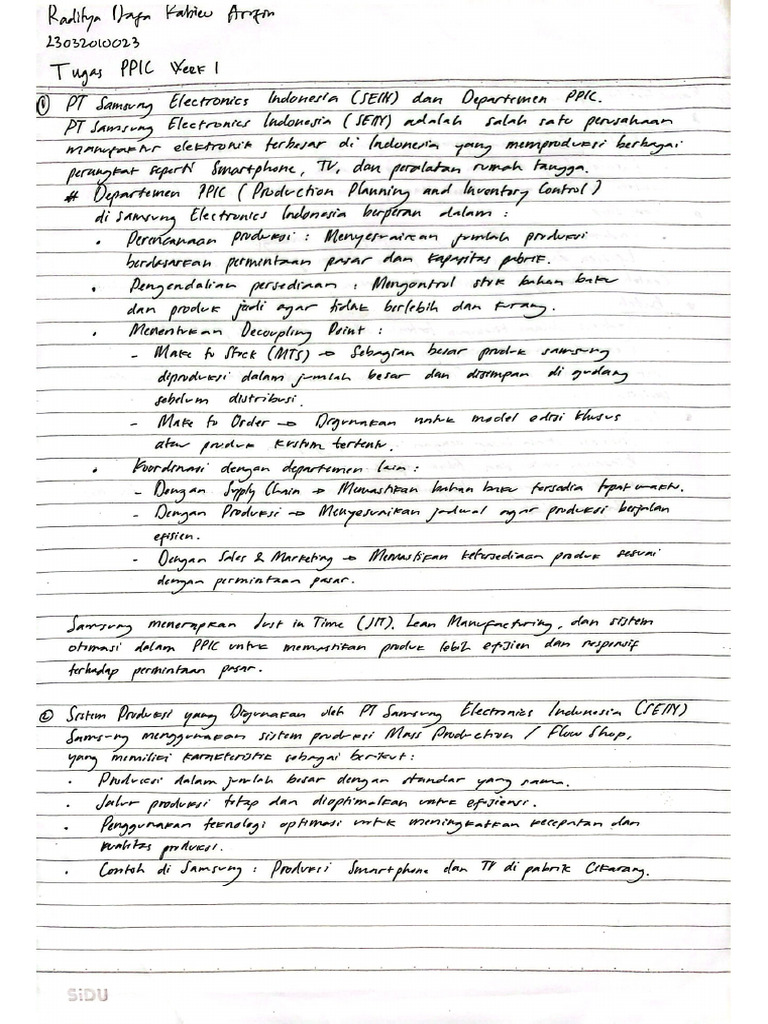 Raditya Dafa Kabiew Arifin
23032010023
Tugas PPIC Week 1
① PT Samsung Electronics Indonesia (SEIN) dan Departemen PPIC.
PT Samsung Electronics Indonesia (SEIN) adalah salah satu perusahaan
manufaktur elektronik terbesar di Indonesia yang memproduksi berbagai
perangkat seperti Smartphone, TV, dan peralatan rumah tangga.
# Departemen PPIC (Production Planning and Inventory Control)
di Samsung Electronics Indonesia berperan dalam :
• Perencanaan produksi : Menyesuaikan jumlah produksi
berdasarkan permintaan pasar dan kapasitas pabrik.
• Pengendalian persediaan : Mengontrol stok bahan baku
dan produk jadi agar tidak berlebih dan kurang.
• Menentukan Decoupling Point :
- Make to Stock (MTS) → Sebagian besar produk samsung
diproduksi dalam jumlah besar dan disimpan di gudang
sebelum distribusi.
- Make to Order → Digunakan untuk model edisi khusus
atau produk kustom tertentu.
• Koordinasi dengan departemen lain :
- Dengan Supply Chain → Memastikan bahan baku tersedia tepat waktu.
- Dengan Produksi → Menyesuaikan jadwal agar produksi berjalan
efisien.
- Dengan Sales & Marketing → Memastikan ketersediaan produk sesuai
dengan permintaan pasar.
Samsung menerapkan Just in Time (JIT), Lean Manufacturing, dan sistem
otimasi dalam PPIC untuk memastikan produk lebih efisien dan responsif
terhadap permintaan pasar.
② Sistem Produksi yang Digunakan oleh PT Samsung Electronics Indonesia (SEIN)
Samsung menggunakan sistem produksi Mass Production / Flow Shop,
yang memiliki karakteristik sebagai berikut:
• Produksi dalam jumlah besar dengan standar yang sama.
• Jalur produksi tetap dan dioptimalkan untuk efisiensi.
• Penggunakan teknologi optimasi untuk meningkatkan kecepatan dan
kualitas produksi.
• Contoh di Samsung : Produksi Smartphone dan TV di pabrik Cikarang.
SiDU